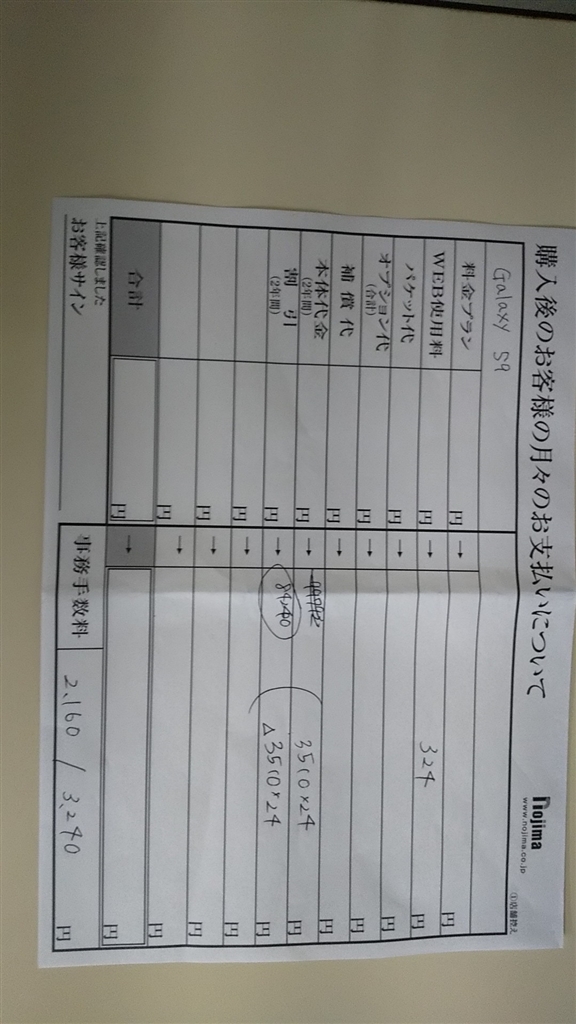 購入後のお客様の月々のお支払いについて
nojima
www.nojima.co.jp
①店舗控え
Galaxy S9
料金プラン 円 → 円
WEB使用料 円 → 324 円
パケット代 円 → 円
オプション代 (合計) 円 → 円
補償代 円 → 円
本体代金 (2年間) 円 → 3510×24 円
割引 (2年間) 円 → 84240 △3510×24 円
円 → 円
円 → 円
円 → 円
合計 円 → 円
上記確認しました
お客様サイン
事務手数料 2,160 / 3,240 円